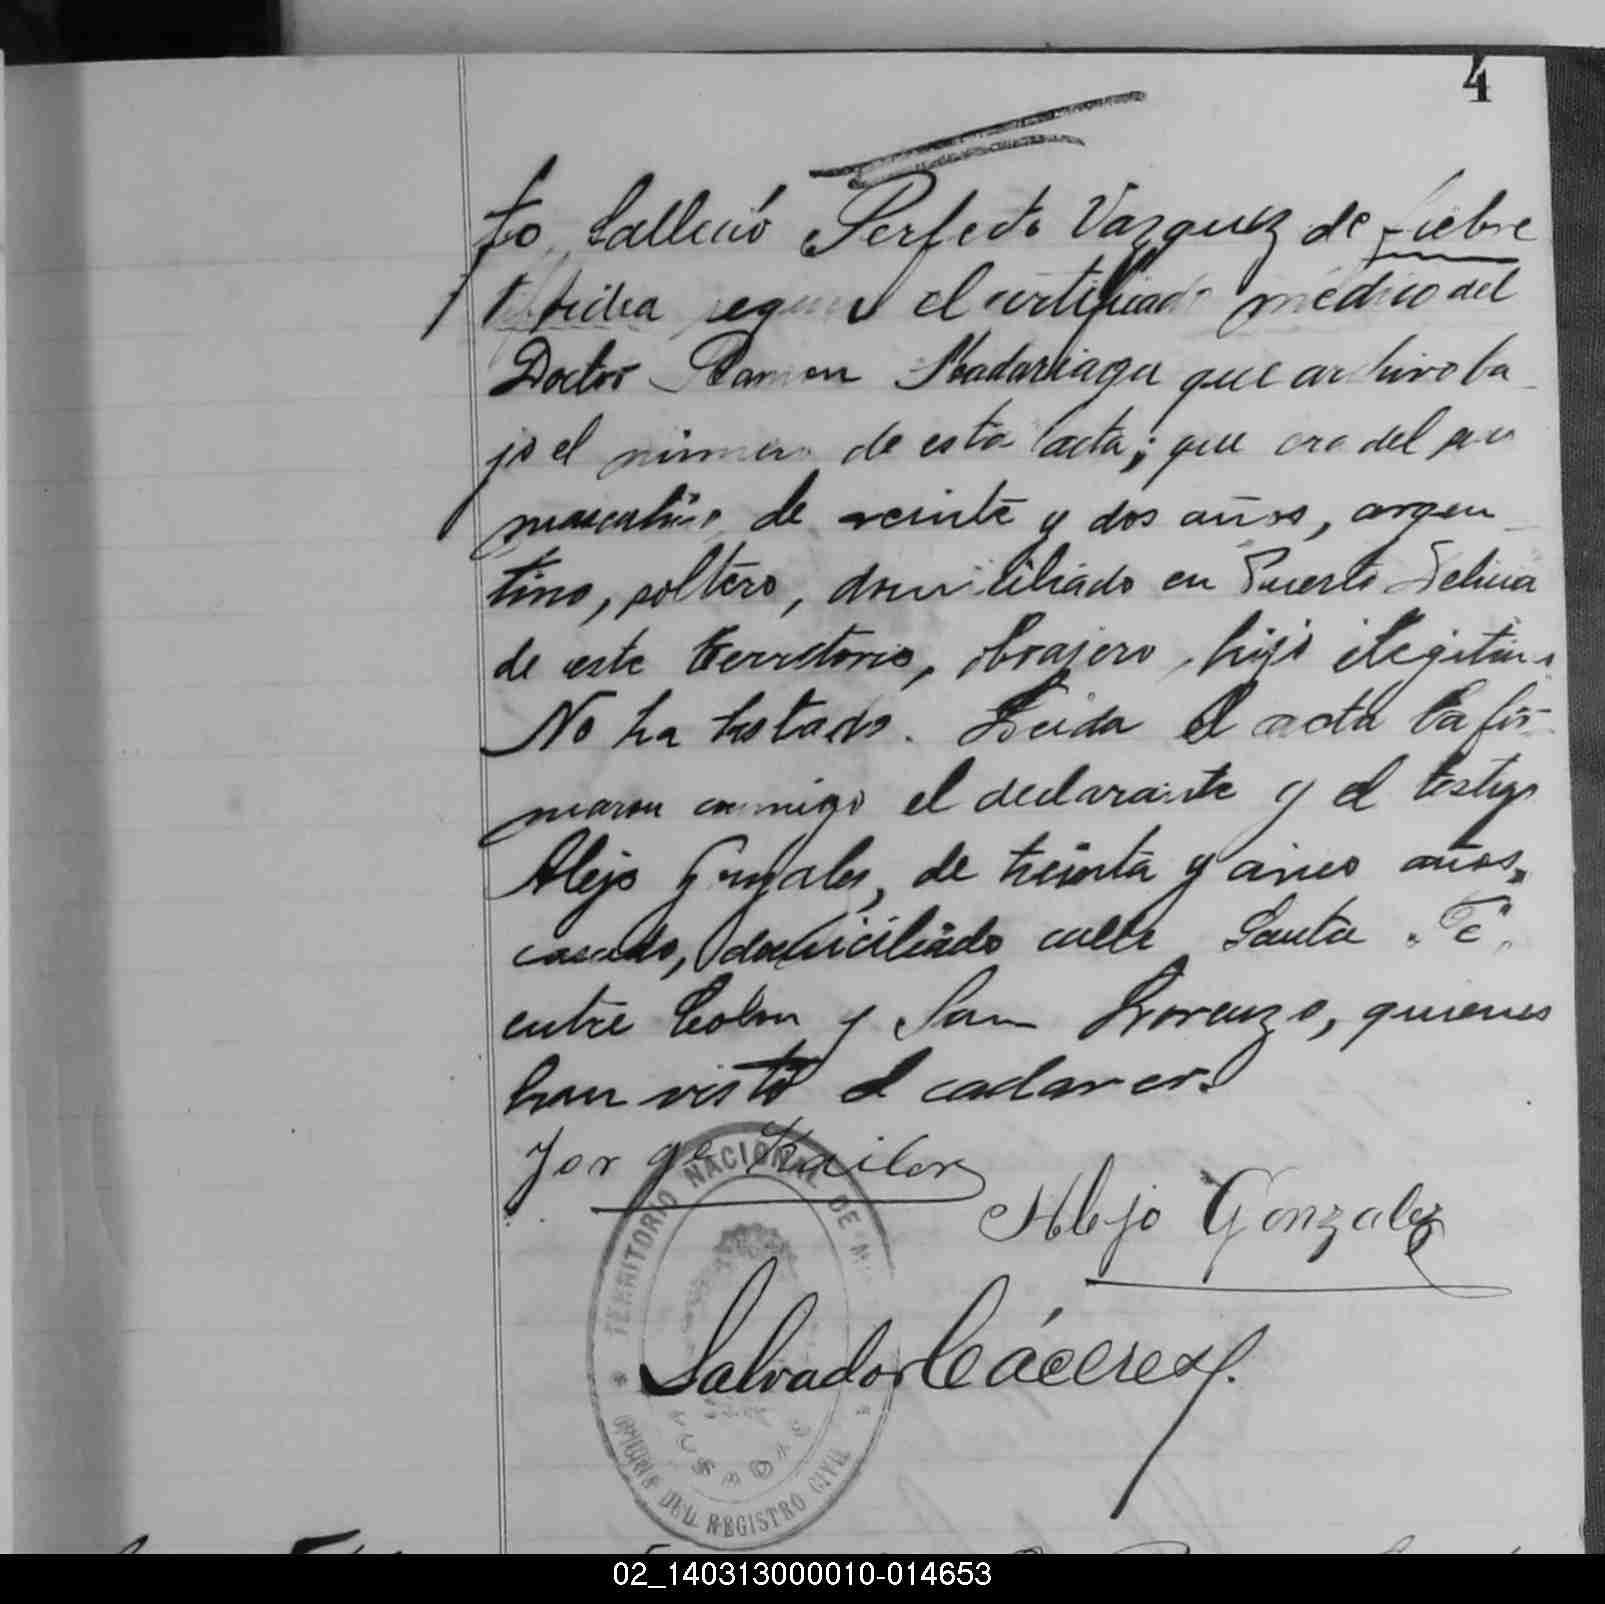 4
to falleció Perfecto Vazquez de fiebre
tifoidea segun el certificado médico del
Doctor Ramon Madariaga que archivo ba
jo el número de esta acta; que era del sexo
masculino de veinte y dos años, argen
tino, soltero, domiciliado en Puerto
de este territorio, obrajero, hijo ilegitimo
No ha testado. Leida el acta la fir
maron conmigo el declarante y el testigo
Alejo Gonzales, de treinta y cinco años,
casado, domiciliado calle Santa Fé
entre Colon y San Lorenzo, quienes
han visto el cadaver.
Jorge
Alejo Gonzalez
Salvador Cáceres
TERRITORIO NACIONAL DE
DEL REGISTRO CIVIL
02_140313000010-014653